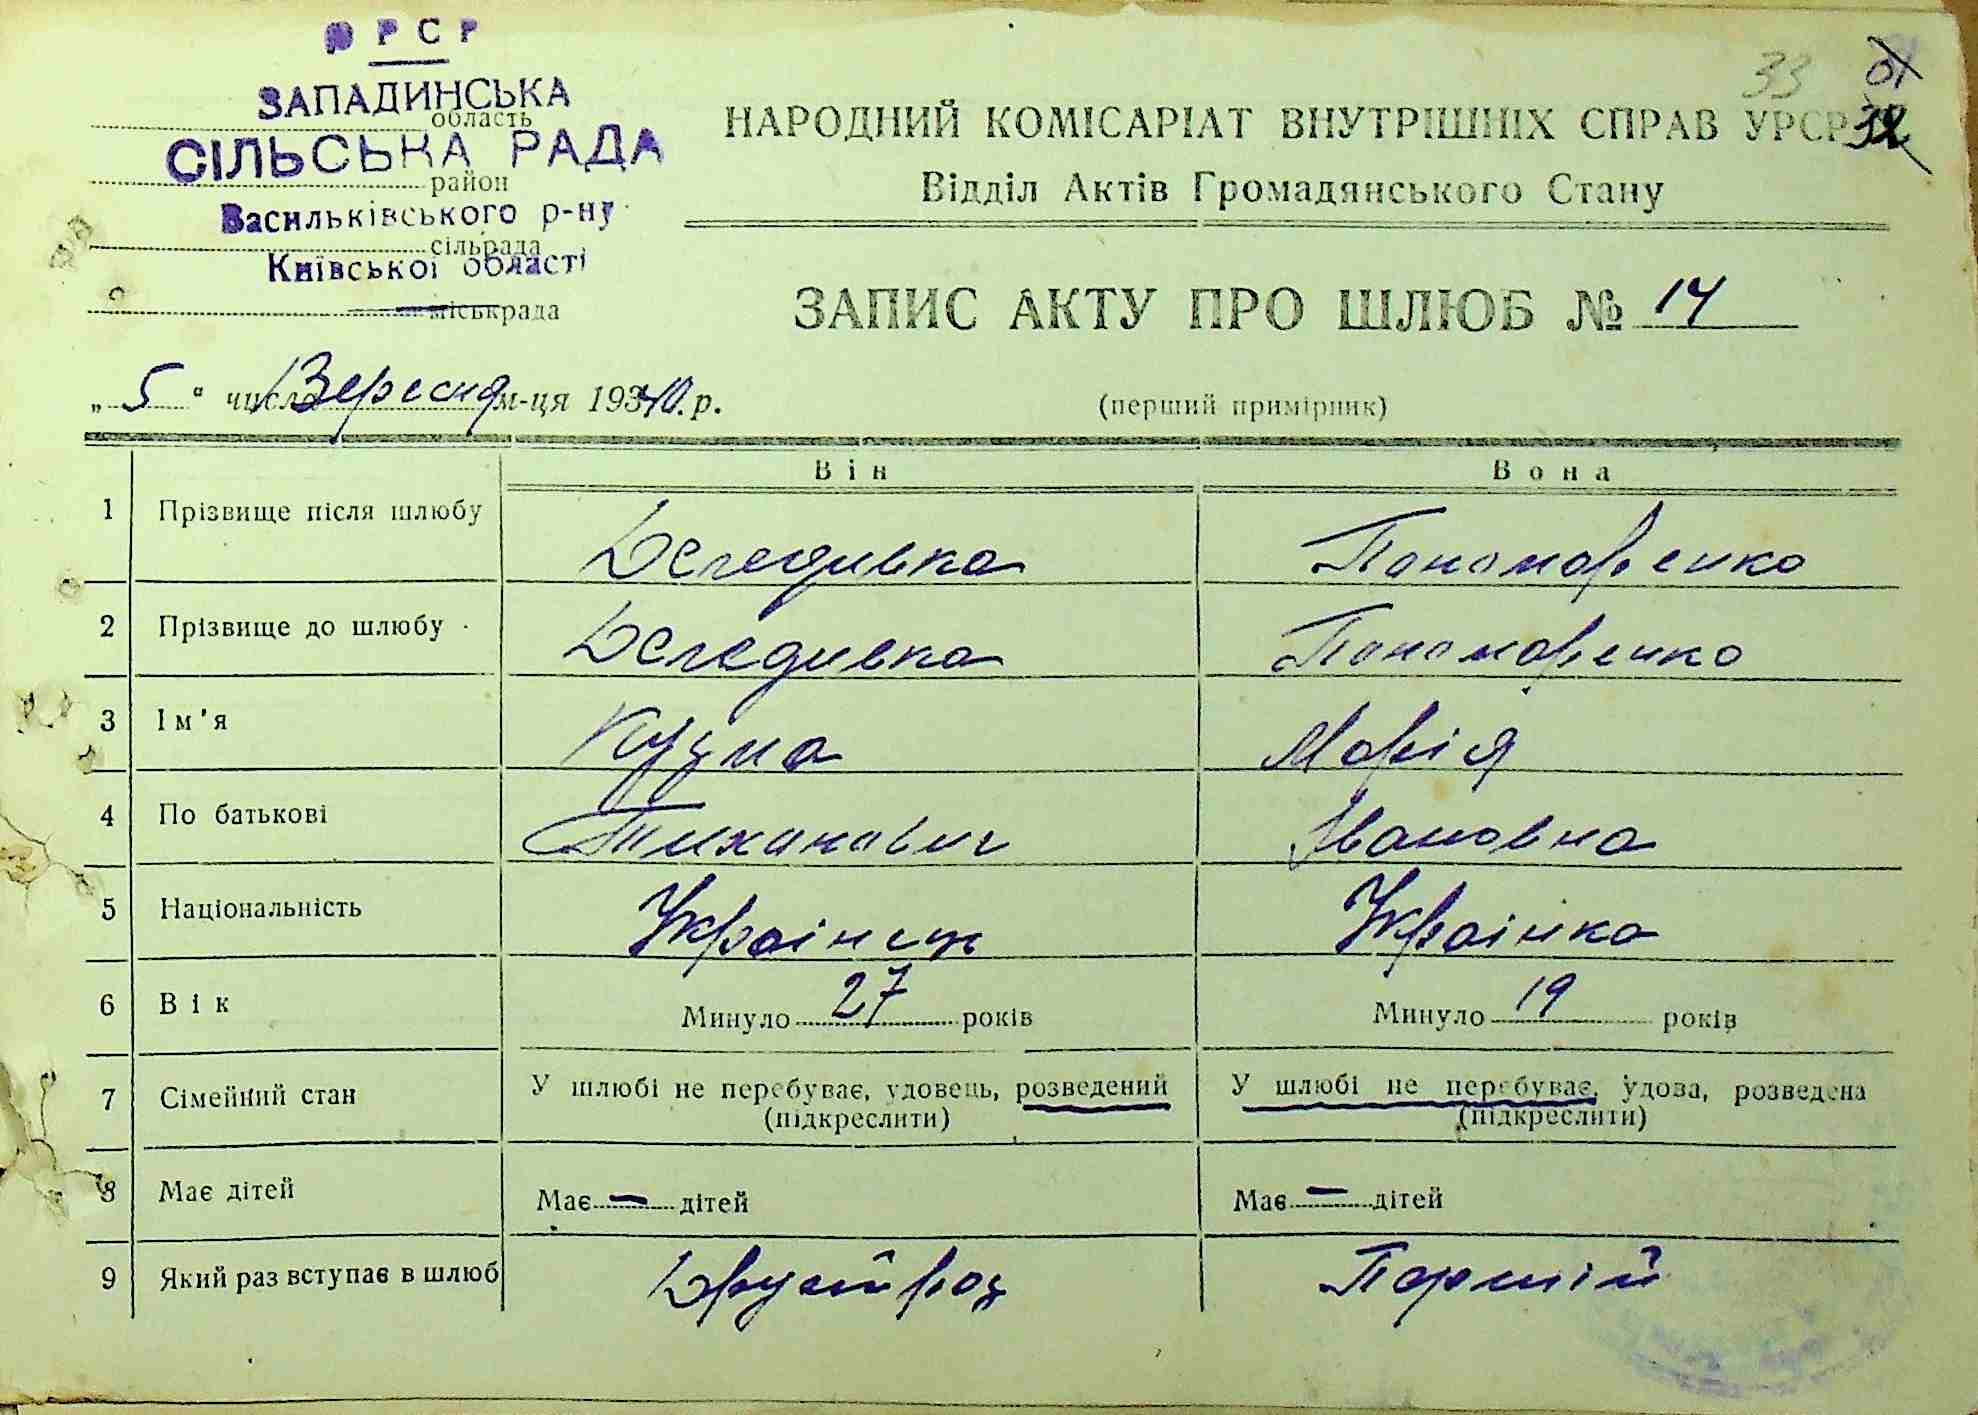 УРСР
ЗАПАДИНСЬКА
область
СІЛЬСЬКА РАДА
район
Васильківського р-ну
сільрада
Київської області
міськрада
33
32
НАРОДНИЙ КОМІСАРІАТ ВНУТРІШНІХ СПРАВ УРСР
Відділ Актів Громадянського Стану
ЗАПИС АКТУ ПРО ШЛЮБ № 14
„ 5 “ числа Вересня м-ця 1940 р.
(перший примірник)
Він Вона
1 Прізвище після шлюбу Дєлєдивка Пономаренко
2 Прізвище до шлюбу Дєлєдивка Пономаренко
3 Ім'я Кузма Марія
4 По батькові Тиханович Івановна
5 Національність Українец Українка
6 Вік Минуло 27 років Минуло 19 років
7 Сімейний стан У шлюбі не перебуває, удовець, розведений У шлюбі не перебуває, удова, розведена
(підкреслити) (підкреслити)
8 Має дітей Має — дітей Має — дітей
9 Який раз вступає в шлюб Другий раз Перший